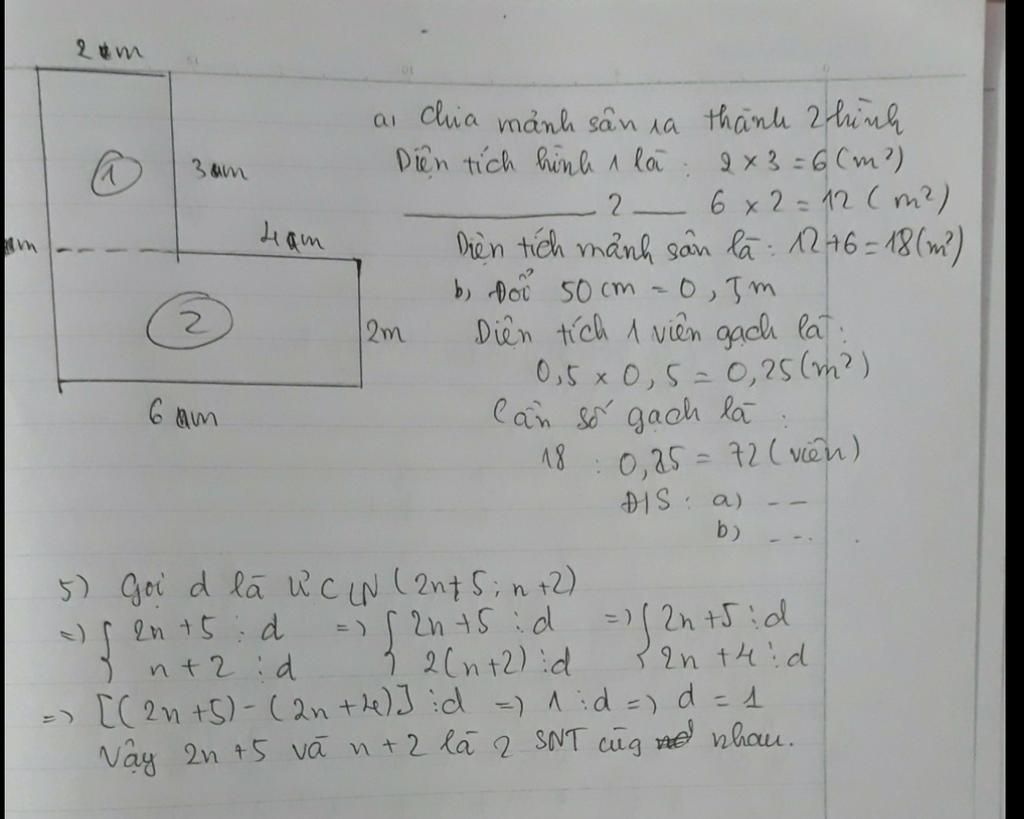 2 m
a, Chia mảnh sân ra thành 2 hình
Diện tích hình 1 là : 2 x 3 = 6 (m²)
1
3 m
2 6 x 2 = 12 ( m²)
m
4 m
Diện tích mảnh sân là : 12 + 6 = 18 (m²)
b, Đổi 50 cm = 0,5m
2
2m
Diện tích 1 viên gạch là :
0,5 x 0,5 = 0,25 (m²)
6 m
Cần số gạch là :
18 : 0,25 = 72 ( viên)
Đ/S : a) - -
b) - - .
5) Gọi d là ƯCLN (2n+5 ; n+2)
=> { 2n + 5 ⋮ d => { 2n + 5 ⋮ d => { 2n + 5 ⋮ d
n + 2 ⋮ d 2(n+2) ⋮ d 2n + 4 ⋮ d
=> [(2n+5) - (2n+4)] ⋮ d => 1 ⋮ d => d = 1
Vậy 2n + 5 và n + 2 là 2 SNT cùg nhau.